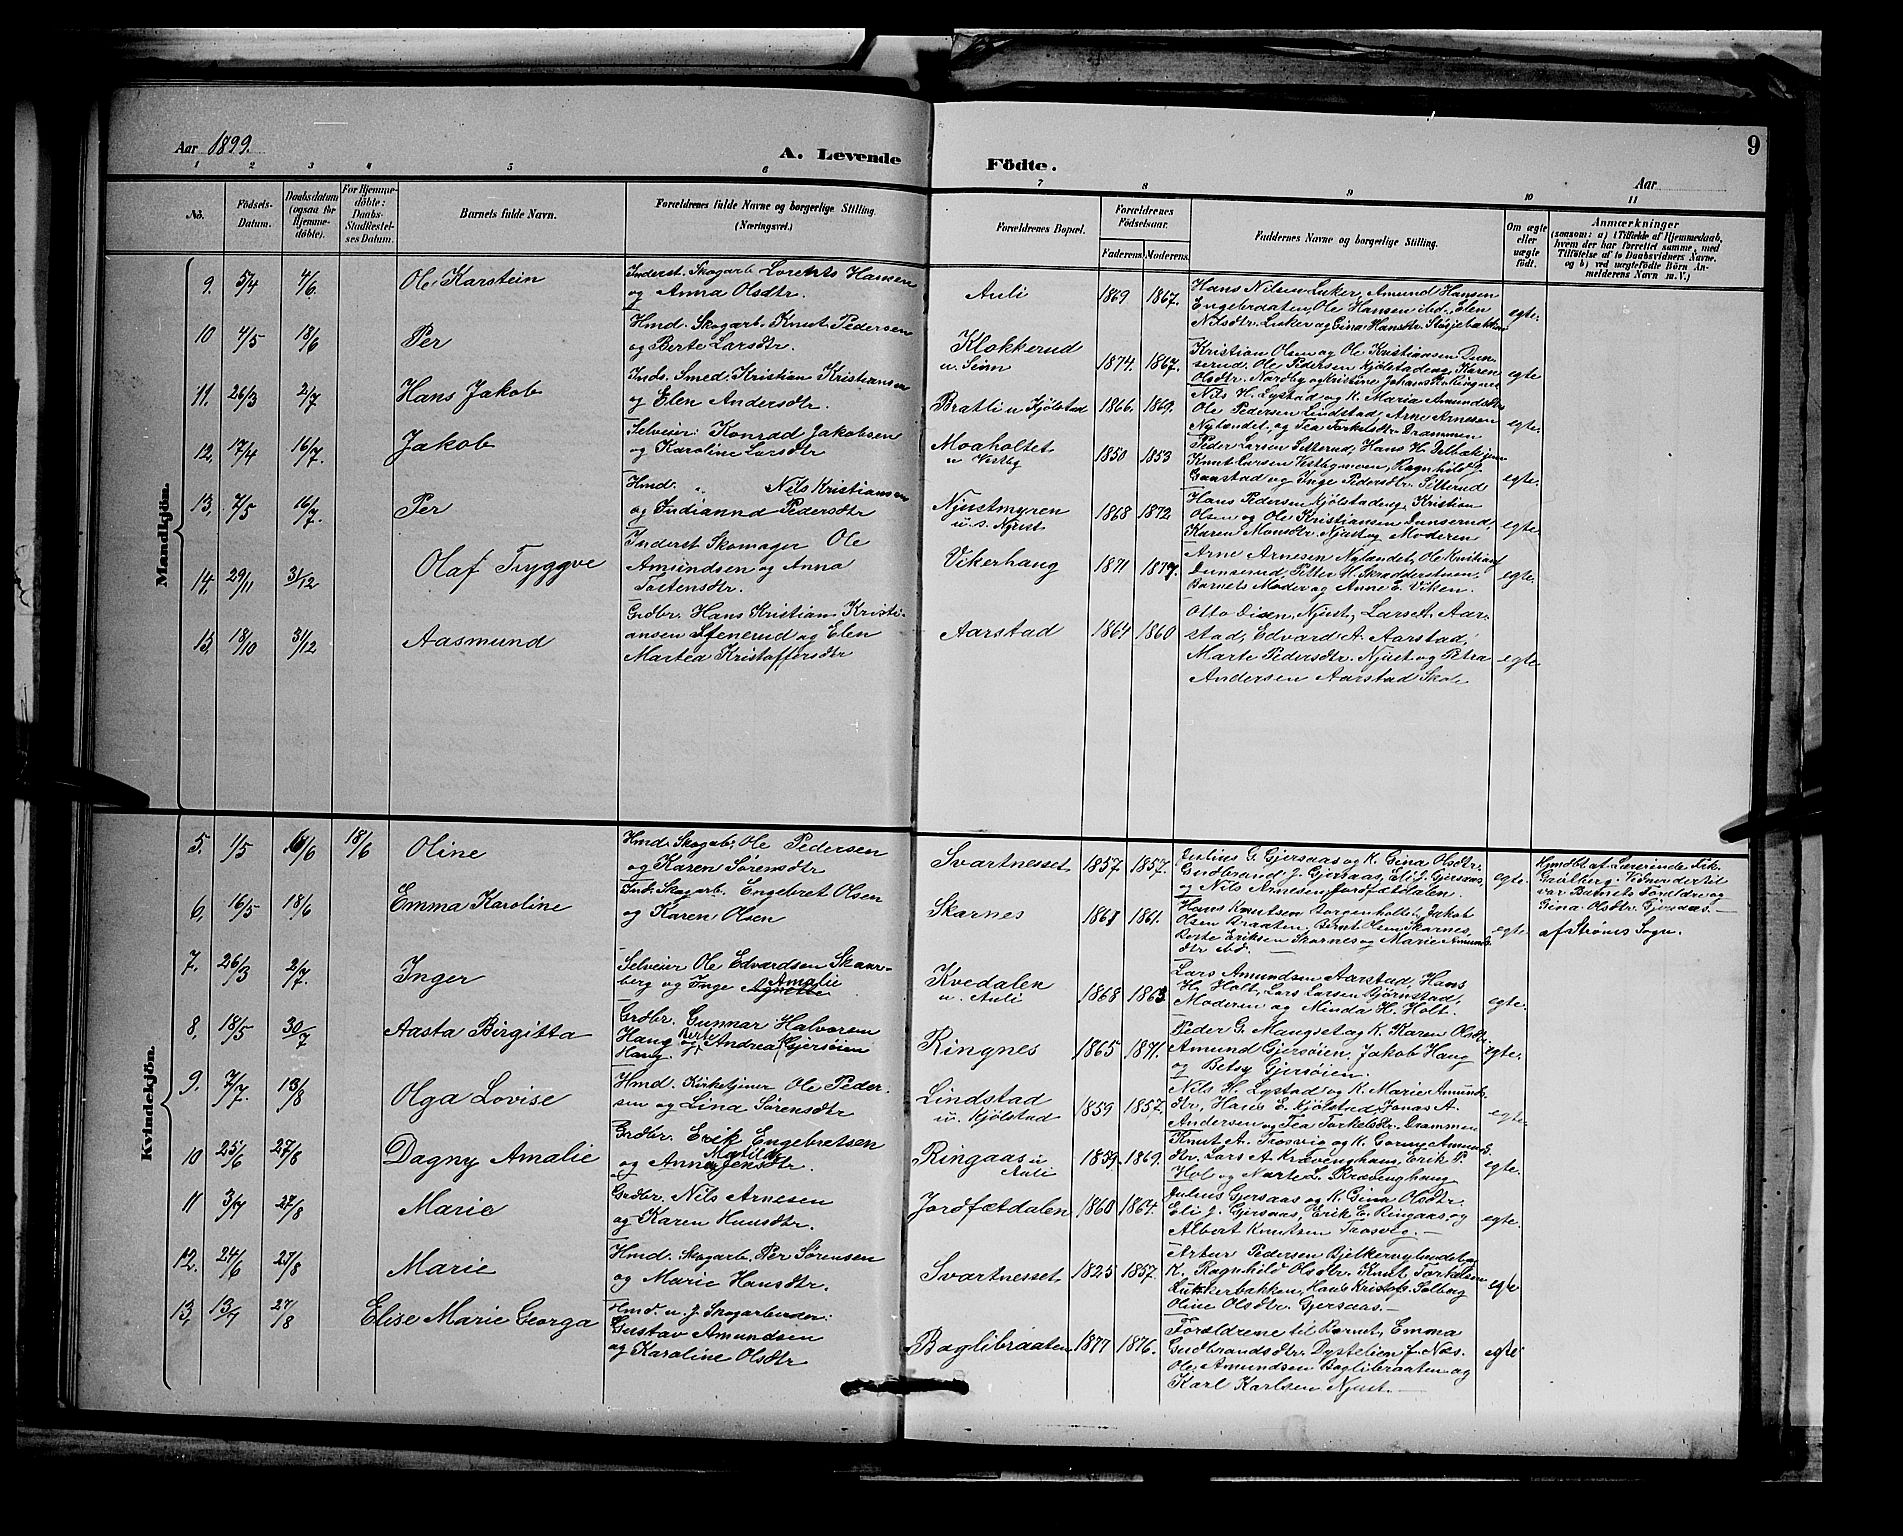 Aar 1899.
A. Levende
Födte.
9
Aar
1 2 3 4 5 6 7 8 9 10 11
No.
Födsels-Datum.
Daabsdatum (ogsaa for Hjemme-döbte).
For Hjemme-döbte: Daabs-Stadfæstel-ses Datum.
Barnets fulde Navn.
Forældrenes fulde Navne og borgerlige Stilling.
(Næringsvei.)
Forældrenes Bopæl.
Forældrenes Födselsaar.
Faderens. Moderens.
Faddernes Navne og borgerlige Stilling.
Om ægte eller uægte födt.
Anmærkninger
(saasom: a) i Tilfælde af Hjemmedaab,
hvem der har forrettet samme, med
Tilföielse af to Daabsvidners Navne,
og b) ved uægtefödte Börn An-
melderens Navn m. V.)
Mandkjön.
9. 5/4 4/6 Ole Karstein
Inderst. Skogarb. Lorents Hansen
og Anna Olsdtr.
Auli 1869 1867.
Hans Nilsen Luker, Amund Hansen
Engebraaten, Ole Hansen ibd., Elen
Nilsdtr. Luker og Gina Hansdtr.
egte.
10 4/5 18/6 Per
Hmd. Skogarb. Knut Pedersen
og Berte Larsdtr.
Klokkerud
1874. 1867.
Kristian Olsen og Ole Kristiansen Dun-
serud, Ole Pedersen Kjölstadeng, Karen
Olsdtr. Nordby og Kristine
egte
11. 26/3 2/7 Hans Jakob
Inds. Smed. Kristian Kristiansen
og Elen Andersdtr.
Bratli u Kjölstad 1866. 1869.
Nils H. Lystad og K. Maria Amundsdtr
Ole Pedersen Lindstad, Arne Arnesen
Nylandet, og Tea Torkelsdtr. Drammen
egte.
12, 17/4 16/7. Jakob
Selveier: Konrad Jakobsen
og Karoline Larsdtr
Moaholtet
u Vestby
1850 1853
Peder Larsen Sitterud, Hans H.
Knut Larsen Vestbymoen, Ragnhild G.
Gaastad og Inge Pedersdtr. Sitterud
egte.
13, 7/5 16/7. Per
Hmd. " Nils Kristiansen
og Indianna Pedersdtr
Njustmyren
u. s. Njust
1868 1872
Hans Pedersen Kjölstadeng, Kristian
Olsen og Ole Kristiansen Dunserud,
Karen Monsdtr. Njust og Moderen
egte.
14, 29/11 31/12 Olaf Tryggve
Inderst Skomager Ole
Amundsen og Anna
Tostensdtr.
Vikerhaug 1871
Arne Arnesen Nylandet, Ole Kristians
Dunserud, Petter M.
Barnets Moder og Anne E. Viken.
egte.
15, 18/10 31/12 Aasmund
Grdbr. Hans Kristian Kristi-
ansen Stenerud og Elen
Martea Kristoffersdtr
Aarstad 1864 1860
Otto Dion, Njust, Lars A. Aar-
stad, Edvard A. Aarstad,
Marte Pedersdtr. Njust og Petra
Andersen Aarstad Skole
egte.
Kvindekjön.
5. 1/5 18/6 Oline
Hmd. Skogarb. Ole Pedersen
og Karen Sörensdtr
Svartnesset 1857 1857.
Julius G. Gjersaas og K. Gina Olsdtr.
Gudbrand J. Gjersaas, Eli J. Gjersaas,
og Nils Arnesen Jordfætdalen.
egte
Hmdbt af Lærerinde Frk.
Gaalberg. Vidner dertil
var Barnets Forældre og
Gina Olsdtr. Gjersaas. —
6, 16/5 18/6 Emma Karoline
Ind. Skogarb. Engebret Olsen
og Karen Olsen
Skarnes 1861.
Hans Knutsen Borgenholtet, Jakob
Olsen Braaten, Bernt Olsen Skarnes,
Berte Eriksen Skarnes og Marie Amunds
dtr ibd. —
egte.
af Ströms Sogn.
7. 26/3 2/7. Inger
Selveier Ole Edvardsen Skaar-
berg og Inge Amalie
Kvedalen
u. Auli
1868
Lars Amundsen Aarstad, Hans
H. Holt, Lars Larsen Björnstad,
Moderen og Minda H. Holt.
egte.
8. 18/5 30/7 Aasta Birgitta
Grdbr. Gunnar Halvorsen
Haug og Andrea Gjersöien
Ringnes 1865 1871.
Peder G. Mangset og K. Karen Olsdtr
Amund Gjersöien, Jakob Haug
og Betsy Gjersöien.
egte.
9. 7/7. 13/8 Olga Lovise
Hmd. Kirketjener Ole Peder-
sen og Lina Sörensdtr
Lindstad
u. Kjölstad
1859 1857.
Nils H. Lystad og K. Marie Amunds
dtr, Hans E. Kjölstad, Jonas A.
Andersen og Tea Torkelsdtr. Drammen
egte.
10 25/6 27/8 Dagny Amalie
Grdbr. Erik Engebretsen
og Anna Matilde Jensdtr.
Ringaas u
Auli
1859. 1869.
Knut A. Trosvig og K. Amunds
dtr, Lars A. Krævenghaug, Erik P.
Hol og Marte L. Krævenghaug
egte.
11 3/7 27/8 Marie
Grdbr. Nils Arnesen
og Karen Hansdtr.
Jordfætdalen 1860 1864.
Julius Gjersaas og K. Gina Olsdtr.
Eli J. Gjersaas, Erik E. Ringaas, og
Albert Knutsen Trosvig. —
egte.
12. 24/6 27/8 Marie
Hmd. Skogarb. Per Sörensen
og Marie Hansdtr.
Svartnesset 1825 1857.
Artur Pedersen Bjelkerudlundet og
K. Ragnhild Olsdtr. Knut Torkelsen
Lukkerbakken, Hans Kristofs. Solberg
Oline Olsdtr. Gjersaas. —
egte
13, 13/7 27/8 Elise Marie Georga
Hmd. u. J. Skogarbeider:
Gustav Amundsen
og Karoline Olsdtr
Baglibraaten 1877 1876.
Forældrene til Barnet, Emma
Gudbrandsdtr. Dystelien f. Næs.
Ole Amundsen Baglibraaten og
Karl Karlsen Njust. —
egte